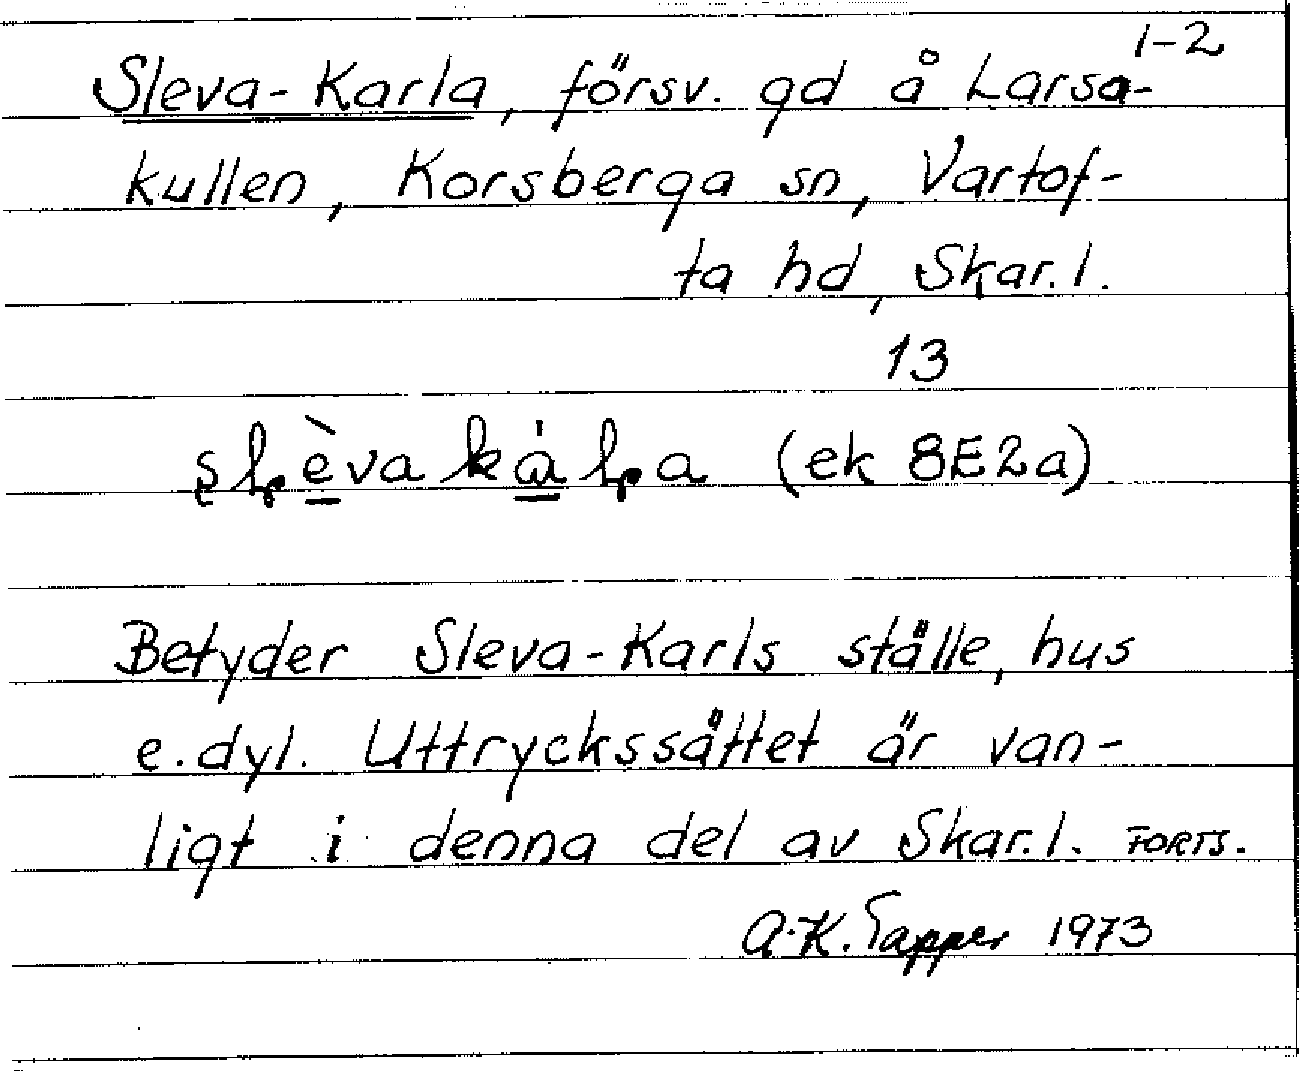 1-2
Sleva-Karla, försv. gd å Larsa-
kullen, Korsberga sn, Vartof-
ta hd, Skar.l.
13
(ek 8E2a)
Betyder Sleva-Karls ställe, hus
e.dyl. Uttryckssättet är van-
ligt i denna del av Skar.l. FORTS.
A-K. Tapper 1973